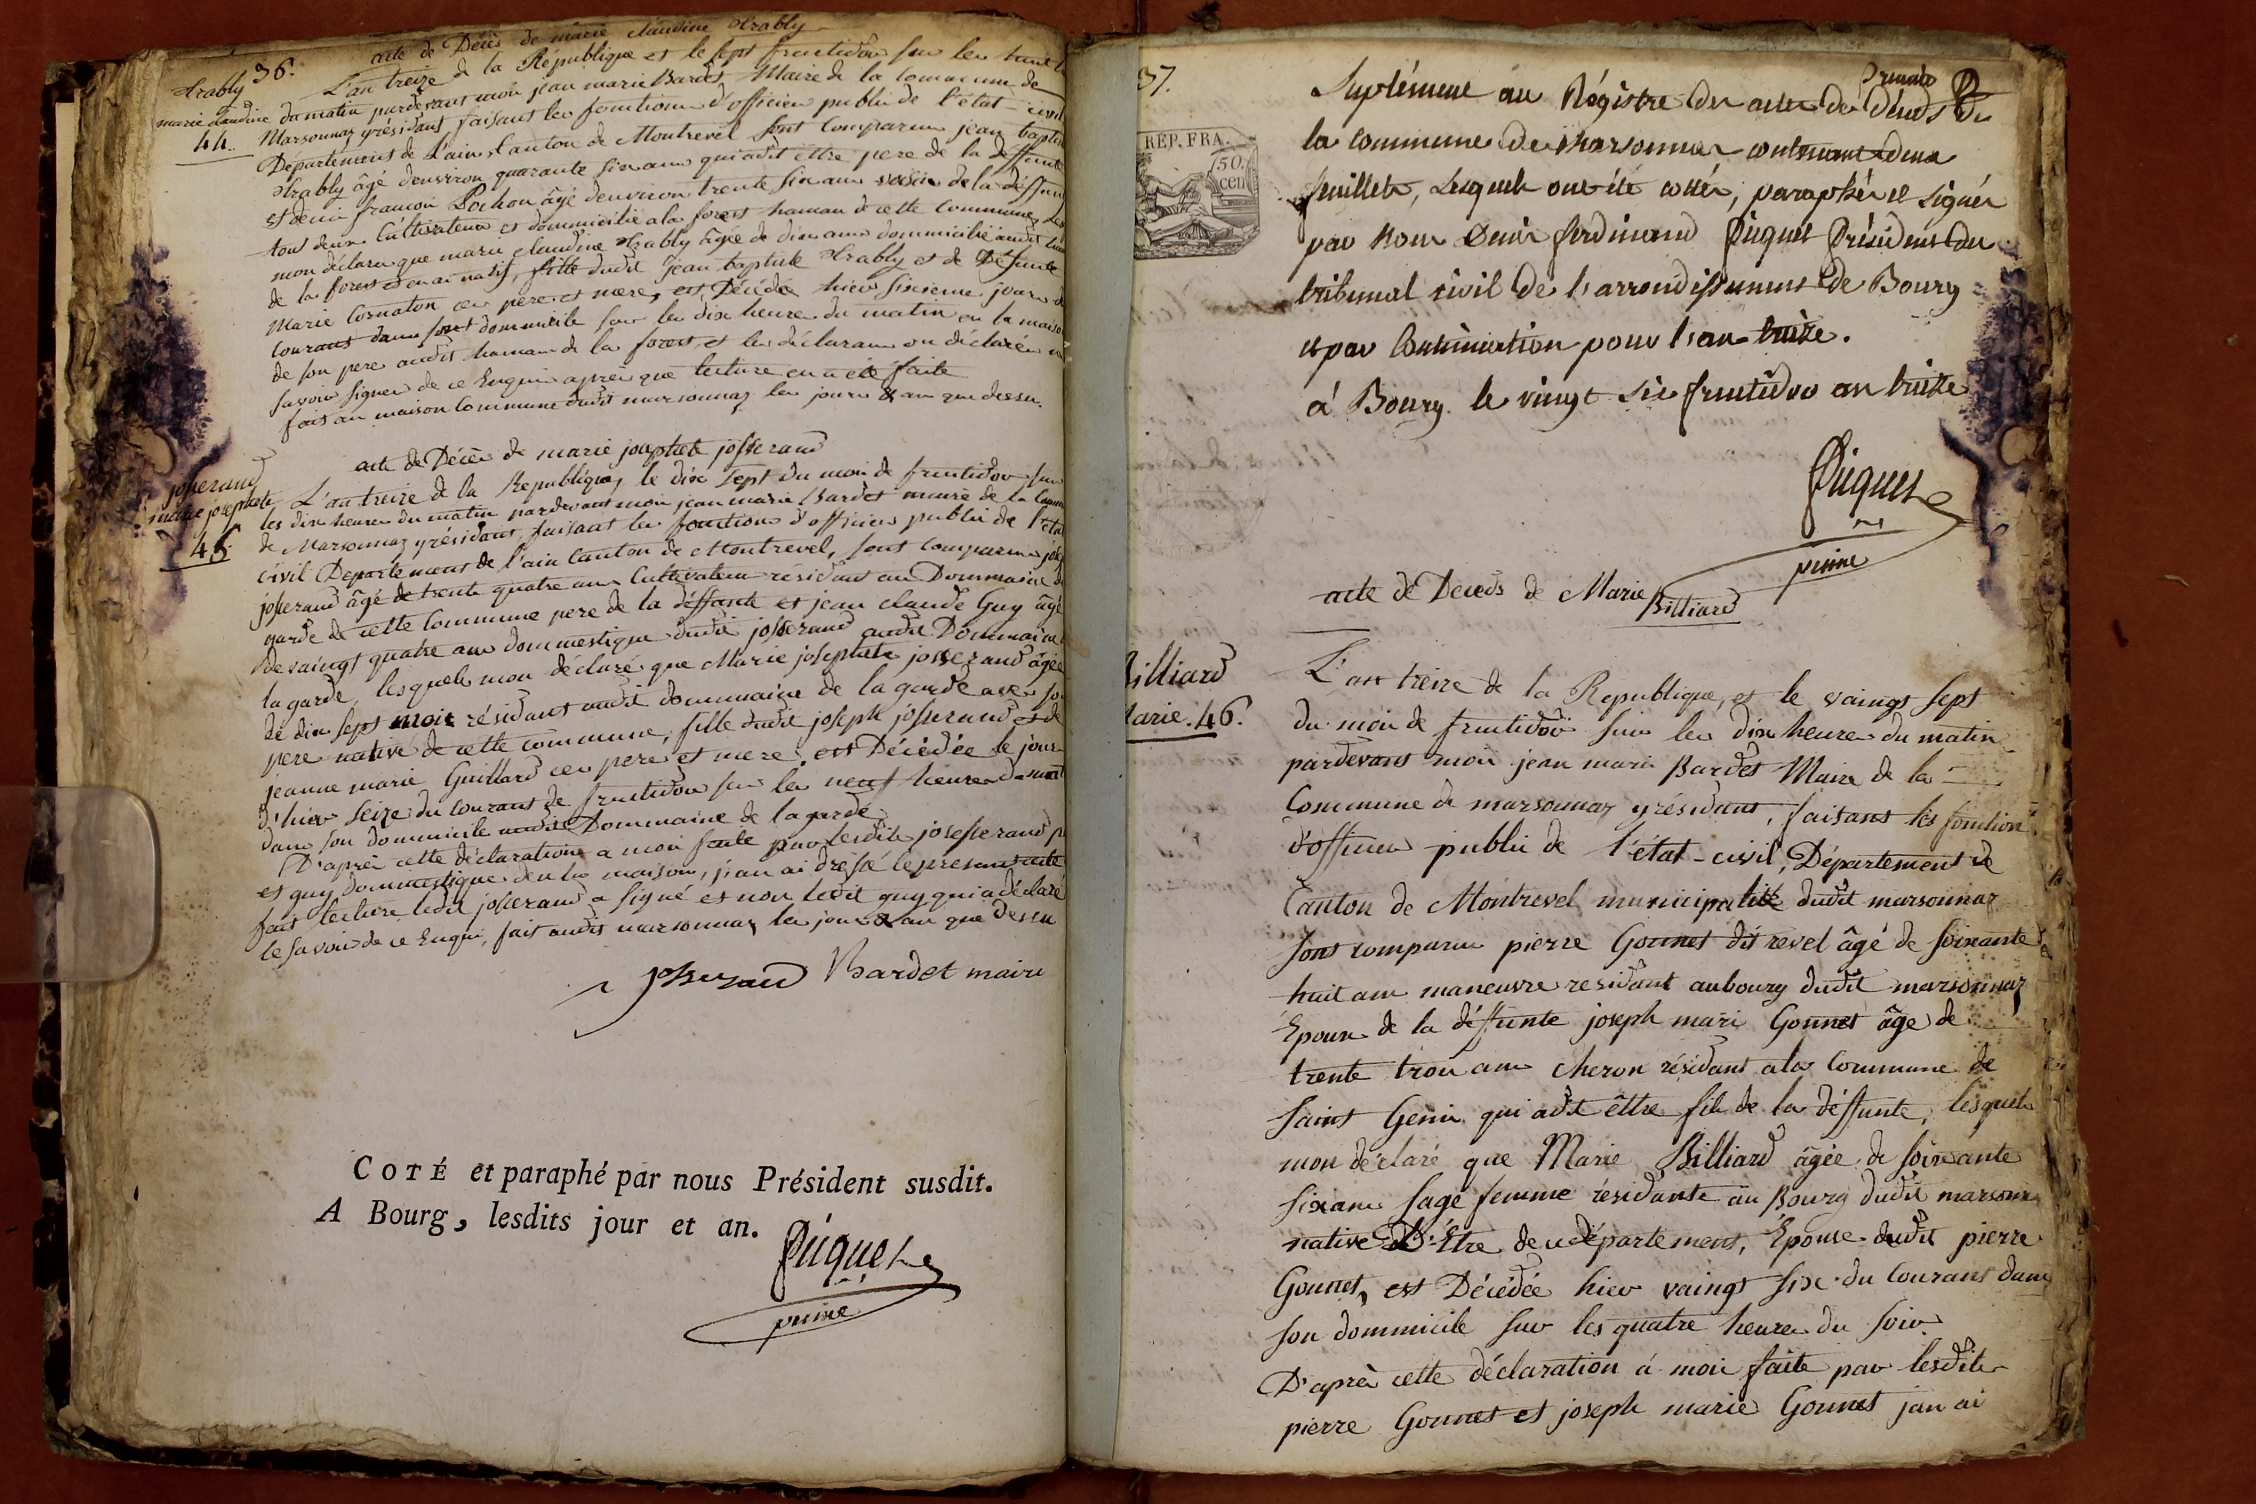 36.
acte de Décès de marie claudine Strably
Strably
marie claudine
44.
L'an treize de la République et le sept fructidor sur les huit
du matin pardevant moi jean marie Bardet Maire de la commune de
Marsonnaz y résidant faisant les fonctions d'officier public de l'état-civil
Département de l'ain Canton de Montrevel sont comparus jean baptiste
Strably âgé d'environ quarante six ans qui a dit être pere de la deffunte
et denis françois Pochon âgé d'environ trente six ans voisin de la déffunte
tous deux Cultivateurs et dommiciliés a la forest hameau de cette commune, les
mon déclaré que marie claudine Strably âgée de dix ans dommiciliée audit
de la forest fille dudit jean baptiste Strably et de Défunte
Marie Cornaton ces pere et mere, est Décédée hier sixieme jour du
courant dans son dommicile sur les dix heures du matin en la maison
de son pere audit hameau de la forest, et les déclarans on déclaré ne
savoir signer de ce Enquis après que lecture en a été faite
fait en maison Commune dudit marsonnaz les jours & an que dessu.
acte de Décès de marie josephte josserand
josserand
marie josephte
45.
L'an treize de la Republique, le dix sept du mois de fructidor sur
les dix heures du matin pardevant moi jean marie Bardet maire de la Commune
de Marsonnaz y résidant, faisant les fonctions d'officier public de l'état
civil Département de l'ain Canton de Montrevel, sont comparus joseph
josserand âgé de trente quatre ans Cultivateur résidant au Dommaine de la
garde de cette Commune pere de la déffunte et jean claude Guy âgé
de vaingt quatre ans dommestique dudit josserand audit Dommaine
la garde, lesquels mon déclaré que Marie josephte josserand âgée
de dix sept mois résidant audit dommaine de la garde avec son
pere native de cette commune, fille dudit joseph josserand et de
jeanne marie Guillard ces pere et mere, est Décédée le jour
d'hier seize du courant de fructidor sur les neuf heures du matin
dans son dommicile audit Dommaine de la garde
D'après cette déclaration a moi faite par lesdits josserand pere
et guy dommestique de la maison, j'an ai dressé le present acte
fait lecture ledit josserand a signé et non ledit guy qui a déclaré
le savoir de ce Enquis, fait audit marsonnaz les jours & an que dessu
josserand Bardet maire
COTÉ et paraphé par nous Président susdit.
A Bourg, lesdits jour et an.
Piquet
37.
RÉP. FRA.
50.
cen
Suplément au Régistre des actes de Décès de
la commune de Marsonnaz contenant deux
feuillets, lesquels ont été cottés, paraphés et signés
par Nous Denis ferdinand Piquet Président du
tribunal civil de l'arrondissement de Bourg
et par Continuation pour l'an treize.
à Bourg le vingt six fructidor an treize
Piquet
acte de Decès de Marie
Billiard
Billiard
Marie. 46.
L'an treize de la Republique, et le vaingt sept
du mois de fructidor sur les dix heures du matin
pardevant moi jean marie Bardet Maire de la
Commune de marsonnaz y résidant, faisant les fonctions
d'officier public de l'état-civil, Département de
Canton de Montrevel municipalité dudit marsonnaz
sont comparus pierre Gonnet dit revel âgé de soixante
huit ans maneuvre residant au bourg dudit marsonnaz
Epoux de la déffunte joseph mari Gonnet âge de
trente trois ans cheron résidant a la Commune de
saint Genis qui a dit être fils de la déffunte, lesquels
mon déclaré que Marie Billiard âgée de soixante
six ans sage femme résidante au Bourg dudit marsonnaz
native D'Etre de ce département, Épouse dudit pierre
Gonnet, est Décédée hier vaingt six du courant dans
son dommicile sur les quatre heures du soir.
D'après cette déclaration à moi faite par lesdits
pierre Gonnet et joseph marie Gonnet jan ai